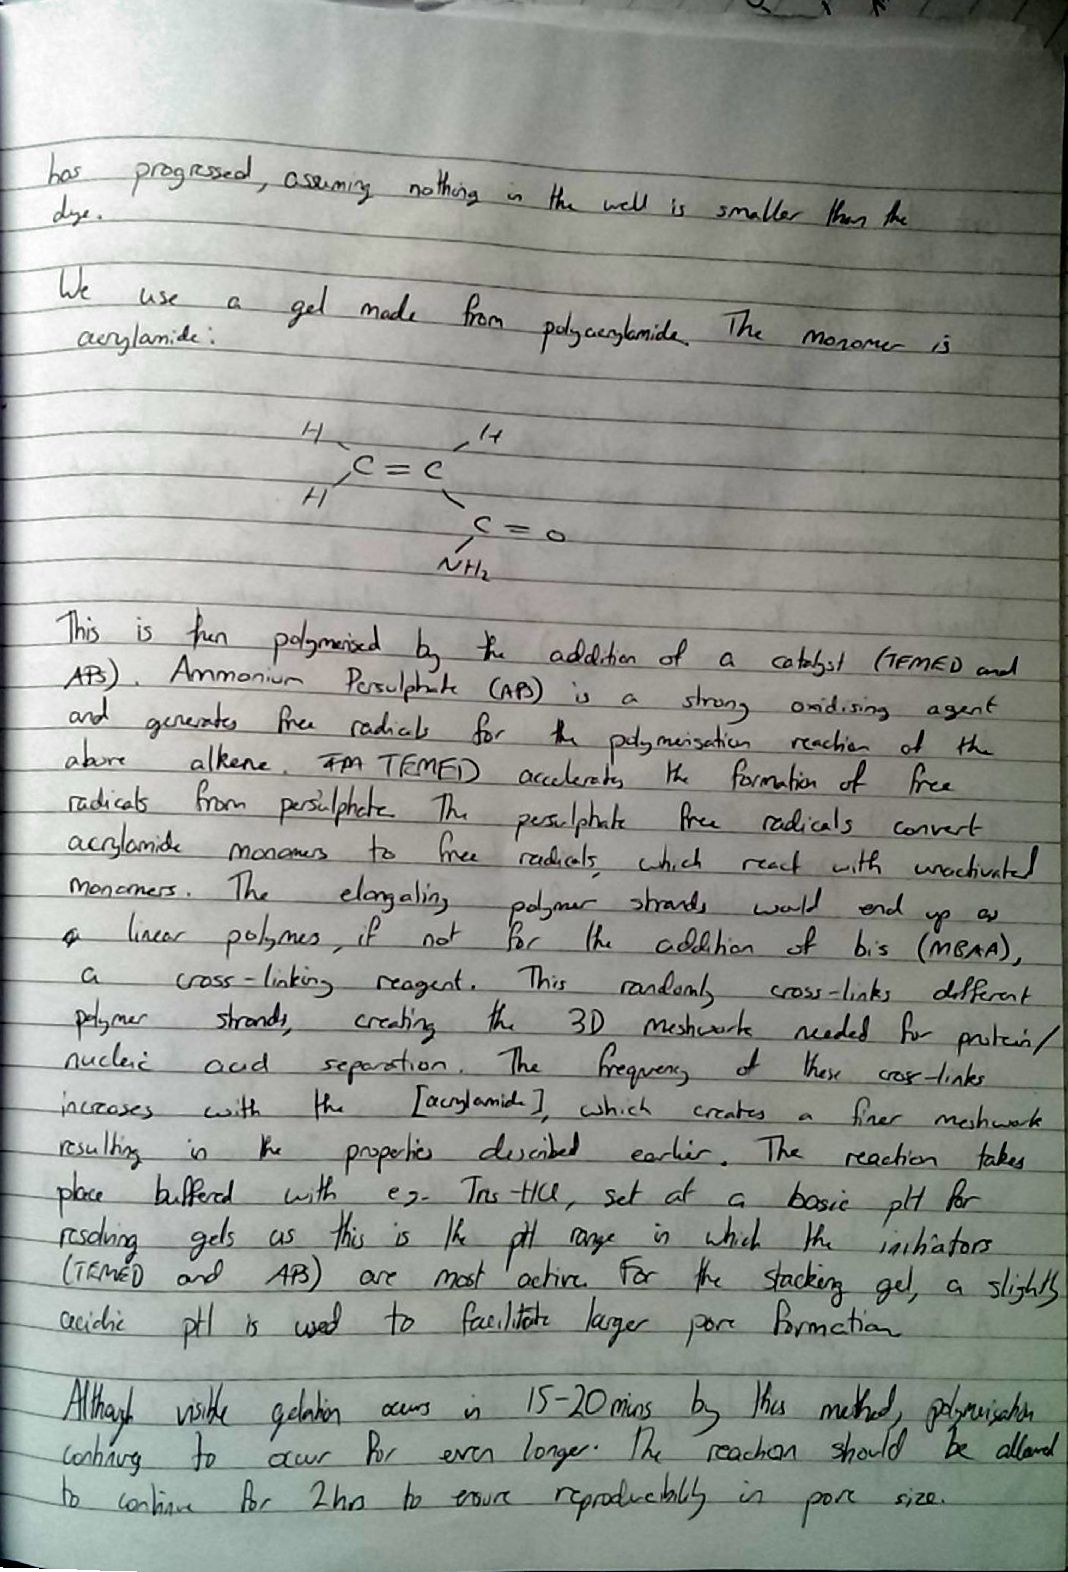 has progressed, assuming nothing in the well is smaller than the
dye.
We use a gel made from polyacrylamide. The monomer is
acrylamide:
H H
C = C
H
C = O
NH₂
This is then polymerised by the addition of a catalyst (TEMED and
APS). Ammonium Persulphate (APS) is a strong oxidising agent
and generates free radicals for the polymerisation reaction of the
above alkene. TEMED accelerates the formation of free
radicals from persulphate. The persulphate free radicals convert
acrylamide monomers to free radicals, which react with unactivated
monomers. The elongating polymer strands would end up as
linear polymers, if not for the addition of bis (MBAA),
a cross-linking reagent. This randomly cross-links different
polymer strands, creating the 3D meshwork needed for protein/
nucleic acid separation. The frequency of these cross-links
increases with the [acrylamide], which creates a finer meshwork
resulting in the properties described earlier. The reaction takes
place buffered with eg. Tris-HCl, set at a basic pH for
resolving gels as this is the pH range in which the initiators
(TEMED and APS) are most active. For the stacking gel, a slightly
acidic pH is used to facilitate larger pore formation
Although visible gelation occurs in 15-20 mins by this method, polymerisation
continues to occur for even longer. The reaction should be allowed
to continue for 2hrs to ensure reproducibility in pore size.